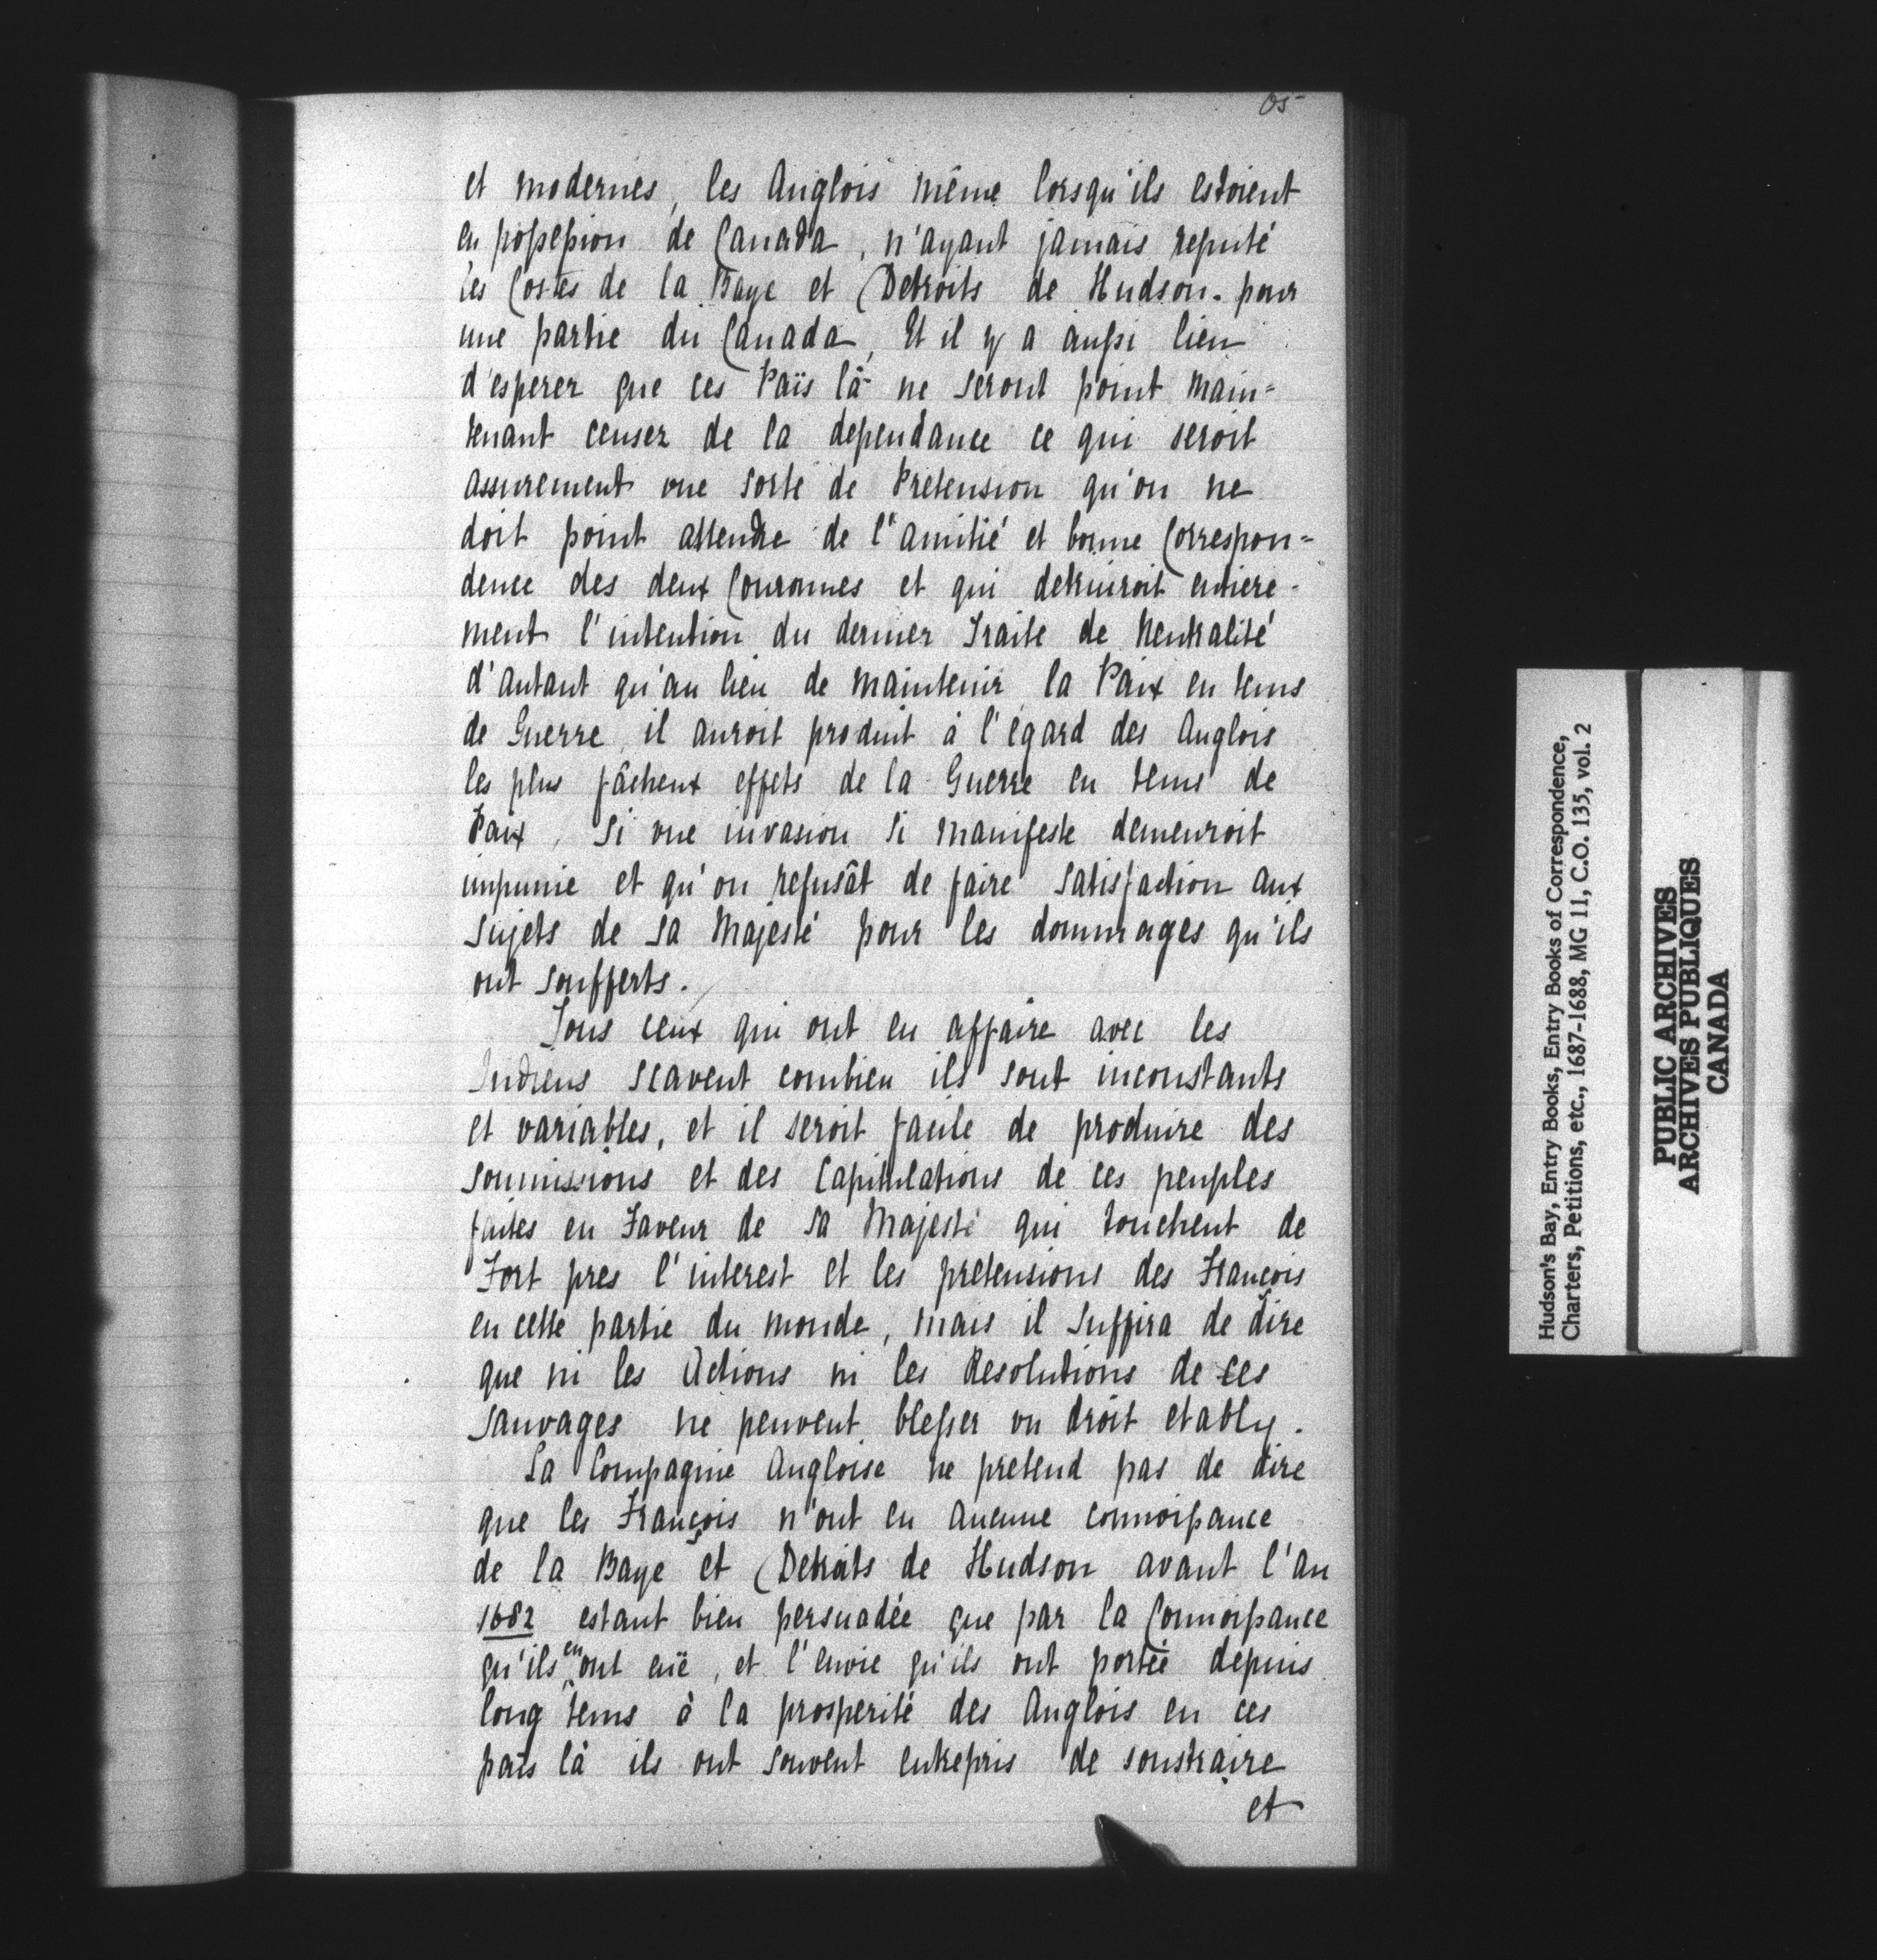 05
et modernes, les Anglois même lorsqu'ils estoient
en possession de Canada, n'ayant jamais reputé
les Costes de la Baye et Detroits de Hudson. pour
une partie du Canada, Et il y a aussi lieu
d'esperer que ces Païs là ne seront point main=
tenant censez de la dependance ce qui seroit
assurement vne sorte de Pretension qu'on ne
doit point attendre de l'amitié et bonne Correspon=
dence des deux Couronnes et qui detruiroit entiere-
ment l'intention du dernier Traite de Neutralité
d'autant qu'au lieu de maintenir la Paix en tems
de Guerre, il auroit produit à l'égard des Anglois
les plus fâcheux effets de la Guerre en tems de
Paix, si vne invasion si manifeste demeuroit
impunie et qu'on refusât de faire satisfaction aux
sujets de sa Majesté pour les dommages qu'ils
ont soufferts.
Tous ceux qui ont eu affaire avec les
Indiens scavent combien ils sont inconstants
et variables, et il seroit facile de produire des
soumissions et des Capitulations de ces peuples
faites en Faveur de sa Majesté qui touchent de
Fort pres l'interest et les pretensions des François
en cette partie du monde, mais il suffira de dire
que ni les Actions ni les Resolutions de ces
sauvages ne peuvent blesser vn droit etably.
La Compagnie Angloise ne pretend pas de dire
que les François n'ont eu aucune connoissance
de la Baye et Detroits de Hudson avant l'an
1682 estant bien persuadée que par la Connoissance
qu'ils en ont eüe, et l'envie qu'ils ont portée depuis
long tems à la prosperité des Anglois en ces
païs là ils ont souvent entrepris de soustraire
et
Hudson's Bay, Entry Books, Entry Books of Correspondence,
Charters, Petitions, etc., 1687-1688, MG 11, C.O. 135, vol. 2
PUBLIC ARCHIVES
ARCHIVES PUBLIQUES
CANADA